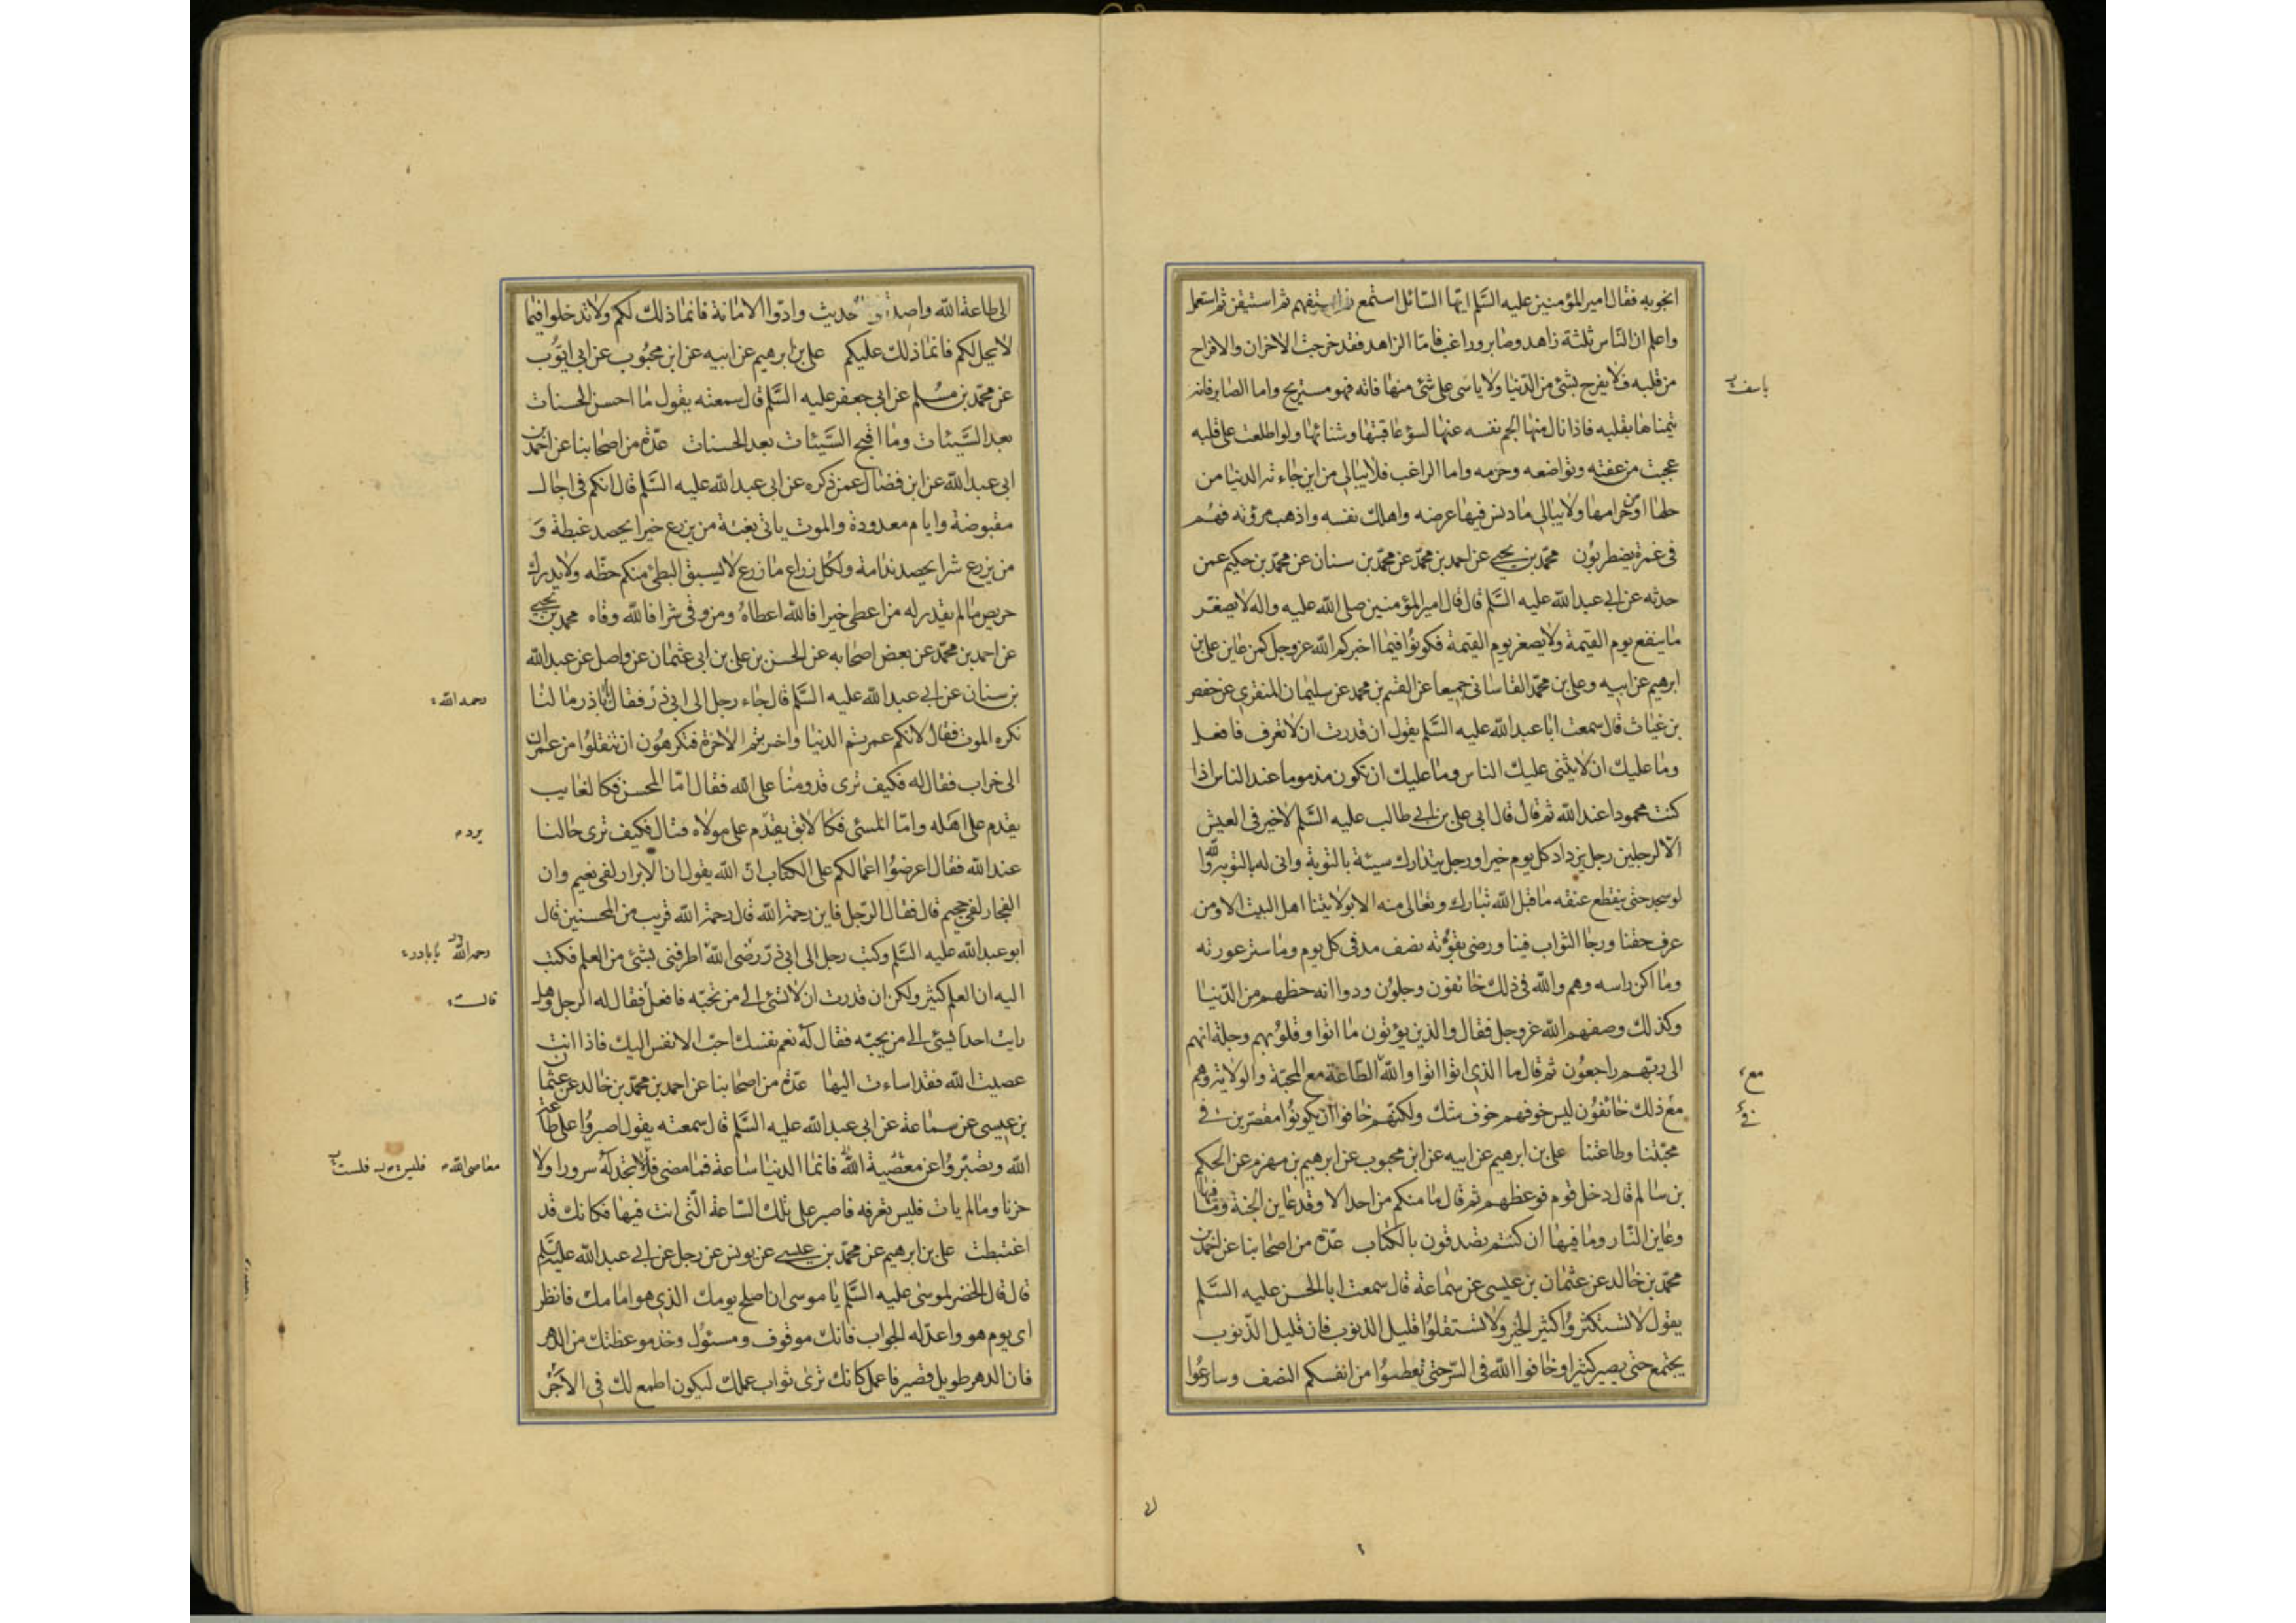 انجو به فقال امير المؤمنين عليه السّلم ايّها السّائل استمع ثم استفهم ثم استيقن ثم استعمل
واعلم ان النّاس ثلثة زاهد وصابر وراغب فامّا الزاهد فقد خرجت الاخزان والافراح
من قلبه فلا يفرح بشئ من الدّنيا ولا ياسى على شئ منها فاته فهو مستريح واما الصابر فانه
يتمناها بقلبه فاذا نال منها الجم نفسه عنها لسؤ عاقبتها وشنائها ولو اطلعت على قلبه
عجبت من عفته وتواضعه وحزمه واما الراغب فلا يبالى من اين جاءته الدنيا من
حلها او من حرامها ولا يبالى ما دنس فيها عرضه واهلك نفسه واذهب مرؤته فهم
فى غمرة يضطربون محمّد بن يحيى عن احمد بن محمّد عن محمّد بن سنان عن محمّد بن حكيم عمن
حدثه عن ابى عبد الله عليه السّلم قال قال امير المؤمنين صلى الله عليه واله لا يصغر
ما ينفع يوم القيمة ولا يصغر يوم القيمة فكونوا فيما اخبركم الله عز وجل كمن عاين على بن
ابرهيم عن ابيه وعلى بن محمّد القاسانى جميعا عن القسم بن محمد عن سليمان المنقرى عن حفص
بن غياث قال سمعت ابا عبد الله عليه السّلم يقول ان قدرت ان لا تعرف فافعل
وما عليك ان لا يثنى عليك الناس وما عليك ان تكون مذموما عند الناس اذا
كنت محمودا عند الله ثم قال قال ابى على بن ابى طالب عليه السّلم لا خير فى العيش
الا لرجلين رجل يزداد كل يوم خيرا ورجل يتدارك سيئة بالتوبة وانى له بالتوبة والله
لو سجد حتى ينقطع عنقه ما قبل الله تبارك وتعالى منه الا بولايتنا اهل البيت الا ومن
عرف حقنا ورجا الثواب فينا ورضى بقوته نصف مد فى كل يوم وما ستر عورته
وما اكن راسه وهم والله فى ذلك خائفون وجلون ودوا انه حظهم من الدّنيا
وكذلك وصفهم الله عز وجل فقال والذين يؤتون ما اتوا وقلوبهم وجلة انهم
الى ربهم راجعون ثم قال ما الذى اتوا اتوا والله الطّاعة مع المحبّة والولاية وهم
مع ذلك خائفون ليس خوفهم خوف شك ولكنهم خافوا ان يكونوا مقصرين فى
محبّتنا وطاعتنا على بن ابرهيم عن ابيه عن ابن محبوب عن ابرهيم بن مهزم عن الحكم
بن سالم قال دخل قوم فوعظهم ثم قال ما منكم من احد الا وقد عاين الجنة وما فيها
وعاين النّار وما فيها ان كنتم تصدقون بالكتاب عدّة من اصحابنا عن احمد بن
محمّد بن خالد عن عثمان بن عيسى عن سماعة قال سمعت ابا الحسن عليه السّلم
يقول لا تستكثروا كثير الخير ولا تستقلوا قليل الذنوب فان قليل الذّنوب
يجتمع حتى يصير كثيرا وخافوا الله فى السّر حتى تعطوا من انفسكم النصف وسارعوا
ياسف
مع
فى
الى
الى طاعة الله واصدقوا الحديث وادّوا الامانة فانما ذلك لكم ولا تدخلوا فيما
لا يحل لكم فانما ذلك عليكم على بن ابرهيم عن ابيه عن ابن محبوب عن ابى ايّوب
عن محمّد بن مسلم عن ابى جعفر عليه السّلم قال سمعته يقول ما احسن الحسنات
بعد السّيئات وما اقبح السّيئات بعد الحسنات عدّة من اصحابنا عن احمد بن
ابى عبد الله عن ابن فضال عمن ذكره عن ابى عبد الله عليه السّلم قال انكم فى اجال
مقبوضة وايام معدودة والموت ياتى بغتة من يزرع خيرا يحصد غبطة و
من يزرع شرا يحصد ندامة ولكل زراع ما زرع لا يسبق البطئ منكم حظه ولا يدرك
حريص ما لم يقدر له من اعطى خيرا فالله اعطاه ومن وقى شرا فالله وقاه محمد بن يحيى
عن احمد بن محمّد عن بعض اصحابه عن الحسن بن على بن ابى عثمان عن واصل عن عبد الله
بن سنان عن ابى عبد الله عليه السّلم قال جاء رجل الى ابى ذر فقال يا باذر ما لنا
نكره الموت فقال لانكم عمرتم الدنيا واخربتم الاخرة فتكرهون ان تنقلوا من عمران
الى خراب فقال له فكيف ترى قدومنا على الله فقال امّا المحسن فكالغايب
يقدم على اهله وامّا المسئ فكالابق يقدّم على مولاه قال فكيف ترى حالنا
عند الله فقال اعرضوا اعمالكم على الكتاب انّ الله يقول ان الابرار لفى نعيم وان
الفجار لفى جحيم قال فقال الرّجل فاين رحمة الله قال رحمة الله قريب من المحسنين قال
ابو عبد الله عليه السّلم وكتب رجل الى ابى ذرّ رضى الله اطرفنى بشئ من العلم فكتب
اليه ان العلم كثير ولكن ان قدرت ان لا تسئ الى من تحبّه فافعل فقال له الرجل وهل
رايت احدا يسئ الى من يحبّه فقال له نعم نفسك احبّ الانفس اليك فاذا انت
عصيت الله فقد اساءت اليها عدّة من اصحابنا عن احمد بن محمّد بن خالد عن عثمان
بن عيسى عن سماعة عن ابى عبد الله عليه السّلم قال سمعته يقول اصبروا على طاعة
الله وتصبّروا عن معصية الله فانما الدنيا ساعة فما مضى فلا تجد له سرورا ولا
حزنا وما لم يات فليس تعرفه فاصبر على تلك السّاعة الّتى انت فيها فكانك قد
اغتبطت على بن ابرهيم عن محمّد بن عيسى عن يونس عن رجل عن ابى عبد الله عليه السّلم
قال قال الخضر لموسى عليه السّلم يا موسى ان اصلح يومك الذى هو امامك فانظر
اى يوم هو واعدّ له الجواب فانك موقوف ومسئول وخذ موعظتك من الدهر
فان الدهر طويل قصير فاعمل كانك ترى ثواب عملك ليكون اطمع لك فى الاجر
رحمه الله
يرد
رحمه الله يا باذر
قالت
معاصى الله فليس فلست